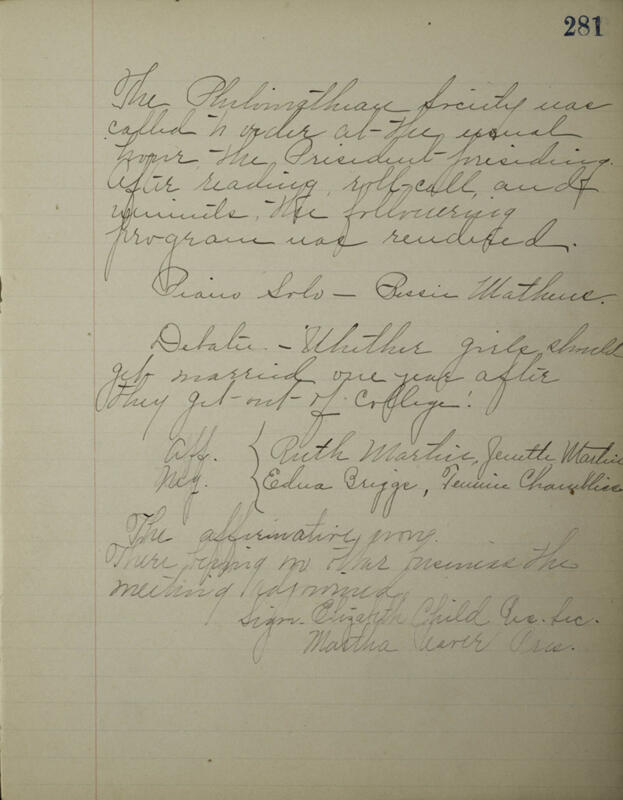 281
The Philomathean Society was
called to order at the usual
hour, the President presiding.
After reading, roll-call, and
minutes, the following
program was rendered.
Piano Solo – Bessie Mathews.
Debate – "Whether girls should
get married one year after
they get out of College".
Aff. Ruth Martin, Jenette Martin
Neg. Edna Briggs, Tennie Chambliss
The affirmative won.
There being no other business the
meeting adjourned.
Sign. Elizabeth Child Rec. Sec.
Martha Pres.